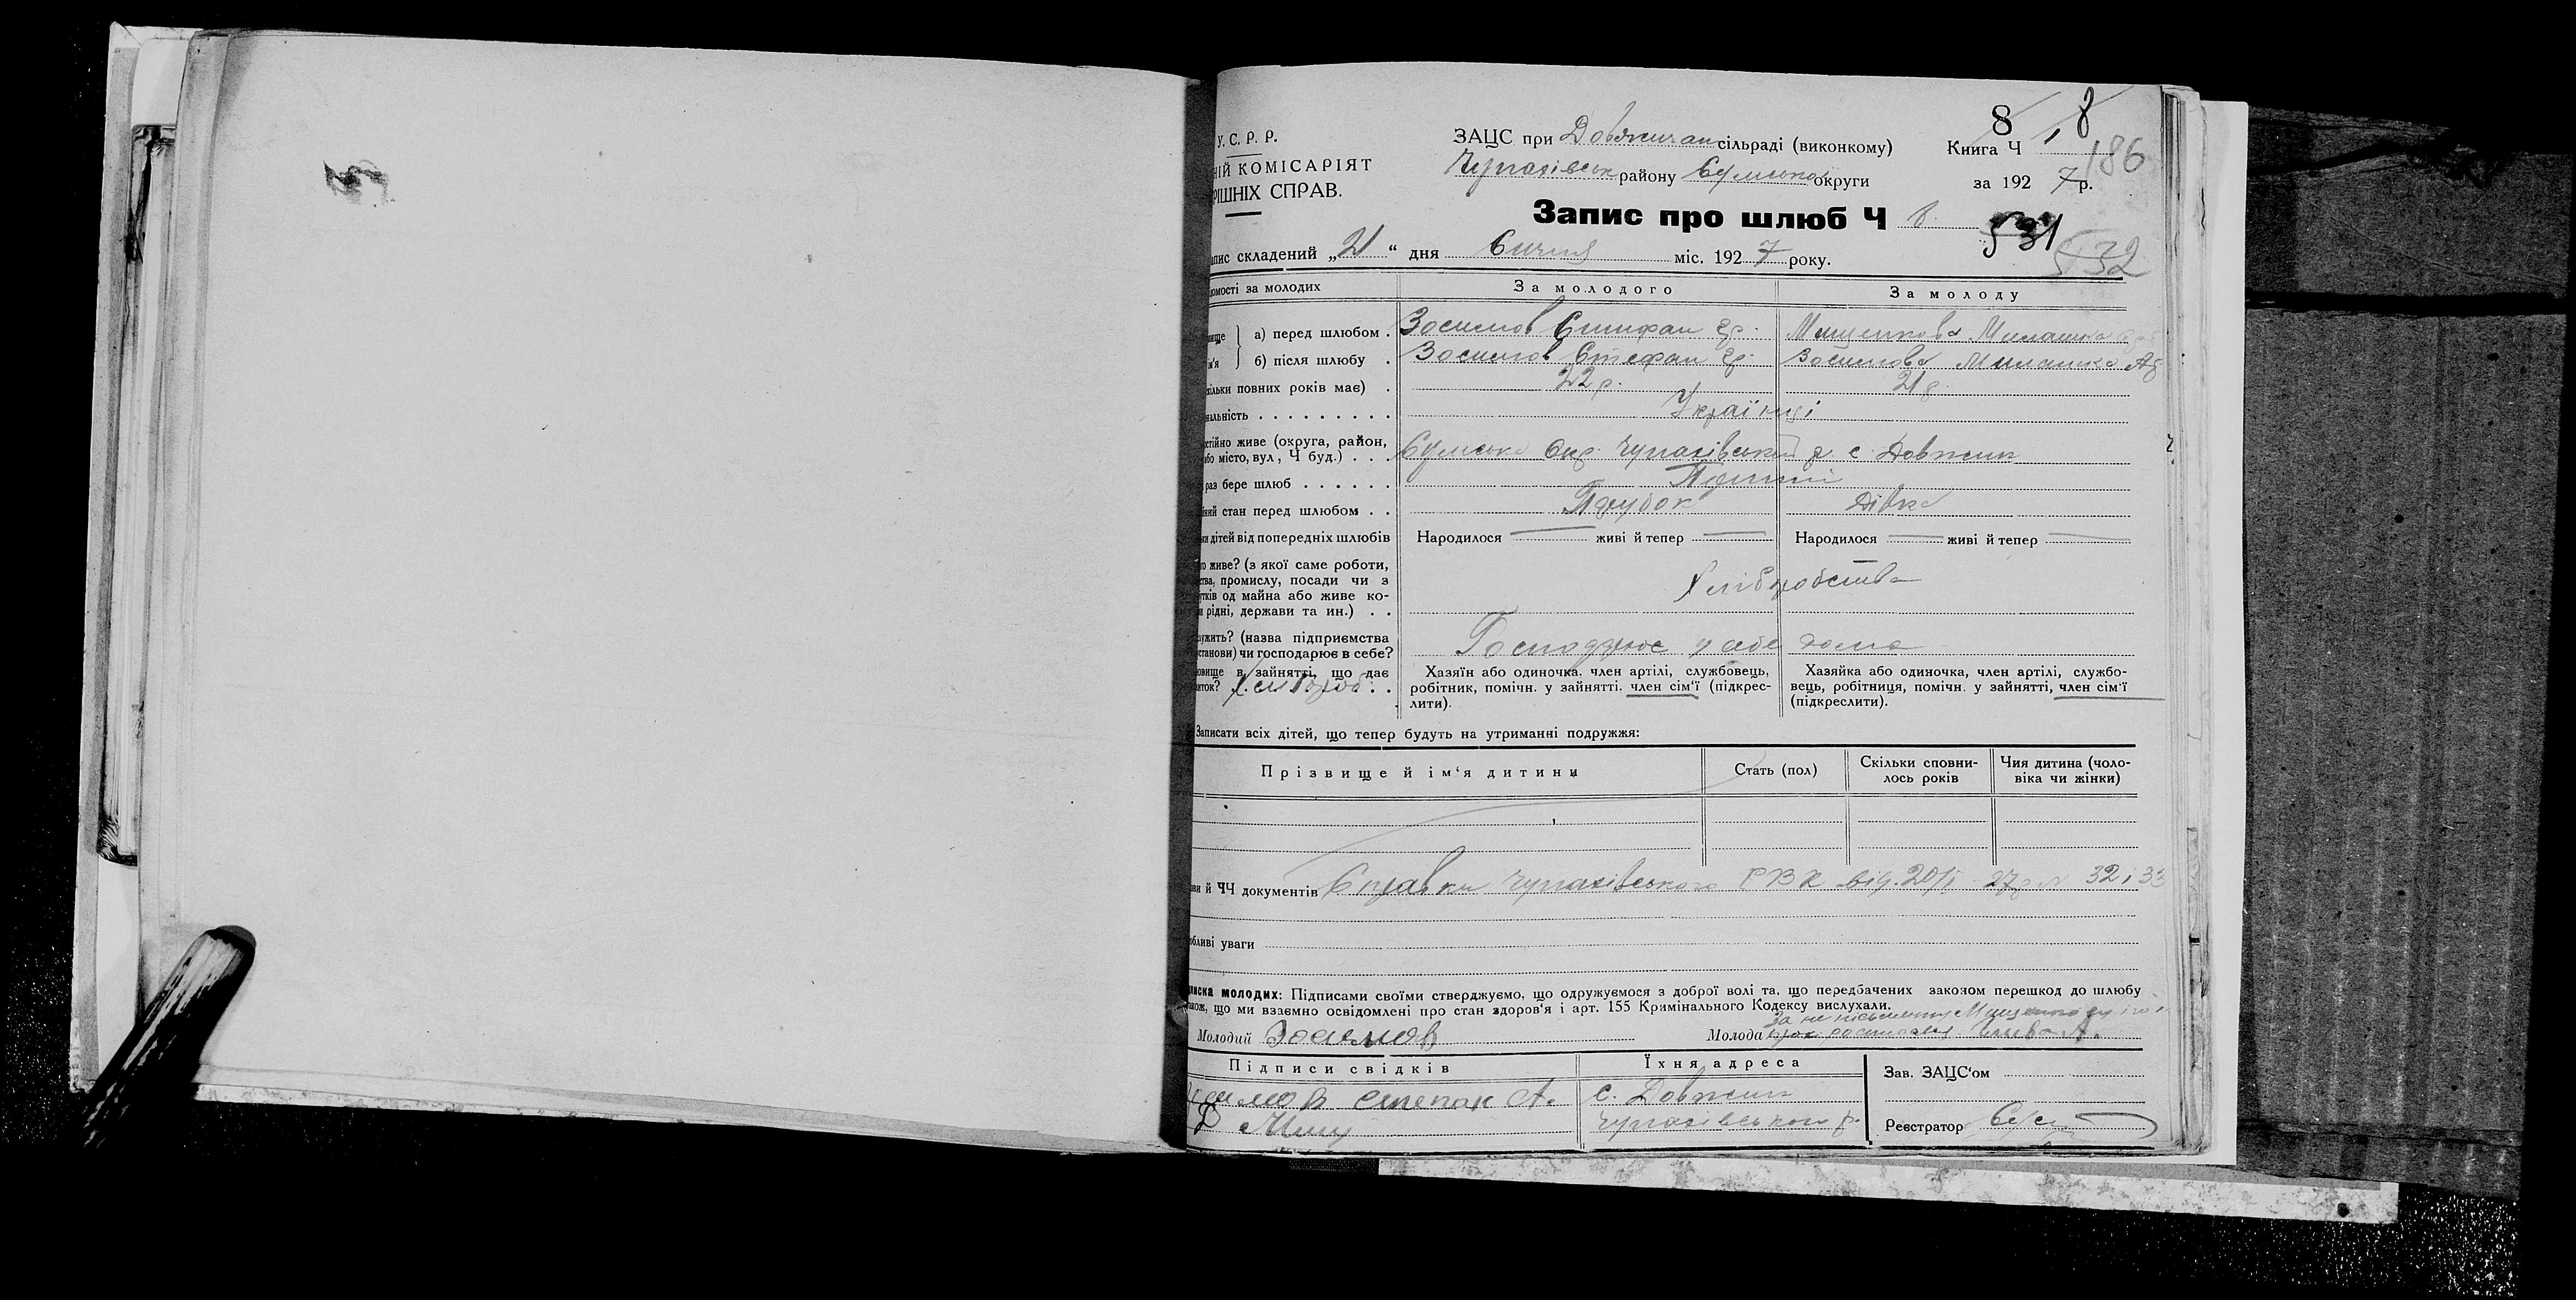 8 8
У. С. Р. Р.
ЗАЦС при Довжичан сільраді (виконкому)
Книга Ч 1
186
НІЙ КОМІСАРІЯТ
Чупахівськ району Сумської округи
за 1927 р.
РІШНІХ СПРАВ.
Запис про шлюб Ч 8.
531
532
апис складений „21“ дня Січня міс. 1927 року.
омості за молодих
За молодого
За молоду
ище а) перед шлюбом .
Зосимов Стифан Гр.
Мищенкова Миланка
м'я б) після шлюбу .
Зосимов Стефан Гр.
Зосимова Миланка
кільки повних років має) .
22 р.
21 р.
нальність . . . . . . . . .
Українці
стійно живе (округа, район,
або місто, вул, Ч буд.) . . .
Сумська Окр. Чупахівський р. с. Довжик
раз бере шлюб . . . . . .
Перший
ний стан перед шлюбом . .
Парубок
Дівка
ки дітей від попередніх шлюбів
Народилося — живі й тепер —
Народилося — живі й тепер —
го живе? (з якої саме роботи,
ства, промислу, посади чи з
тків од майна або живе ко-
и рідні, держави та ин.) . .
Хліборобства
ужить? (назва підприємства
станови) чи господарює в себе?
Господарює у себе дома
овище в зайнятті, що дає
иток? Хлібороб . .
Хазяїн або одиночка, член артілі, службовець,
робітник, помічн. у зайнятті, член сім'ї (підкрес-
лити).
Хазяйка або одиночка, член артілі, службо-
вець, робітниця, помічн. у зайнятті, член сім'ї
(підкреслити).
Записати всіх дітей, що тепер будуть на утриманні подружжя:
Прізвище й ім'я дитини
Стать (пол)
Скільки сповни-
лось років
Чия дитина (чоло-
віка чи жінки)
ви й ЧЧ документів Справки Чупахівського РВК від. 20/I - 27 р № 32 і 33
обливі уваги
писка молодих: Підписами своїми стверджуємо, що одружуємося з доброї волі та, що передбачених законом перешкод до шлюбу
також, що ми взаємно освідомлені про стан здоров'я і арт. 155 Кримінального Кодексу вислухали.
Молодий Зосимов
Молода
За не письменну Мищенкову
росписався
Підписи свідків
Їхня адреса
Зав. ЗАЦС'ом
Зосимов Степан А.
с. Довжик
Мищ
Чупахівського р.
Реєстратор